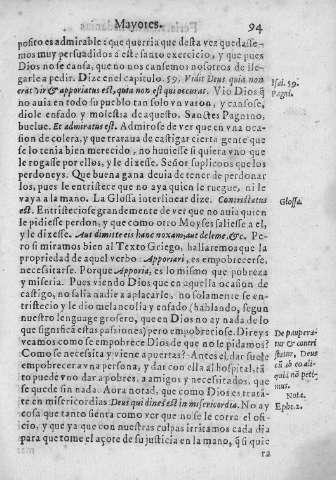 Mayores.
94
posito es admirable: que querria que desta vez quedasse-
mos muy persuadidos a este santo exercicio, y que pues
Dios no se cansa, que no nos cansemos nosotros de lle-
garle a pedir. Dize en el capitulo. 59. Vidit Deus quia non
erat vir & apporiatus est, quia non est qui occurrat. Vio Dios q̃
no auia en todo su pueblo tan solo vn varon, y cansose,
diole ensado y molestia de aquesto. Sanctes Pagnino,
buelue. Et admiratus est. Admirose de ver que en vna oca-
sion de colera, y que trataua de castigar cierta gente que
se lo tenia bien merecido, no huuiesse si quiera vno que
le rogasse por ellos, y le dixesse. Señor suplicoos que los
perdoneys. Que buena gana deuia de tener de perdonar
los, pues le entristece que no aya quien le ruegue, ni le
vaya a la mano. La Glossa interlinear dize. Contristatus
est. Entristeciose grandemente de ver que no auia quien
le pidiesse perdon, y que como otro Moyses saliesse a el,
y le dixesse. Aut dimitte eis hanc noxam, aut dele me, &c. Pe-
ro si miramos bien al Texto Griego, hallaremos que la
propriedad de aquel verbo Apporiari, es empobrecerse,
necessitarse. Porque Apporia, es lo mismo que pobreza
y miseria. Pues viendo Dios que en aquella ocasion de
castigo, no salia nadie a aplacarle, no solamente se en-
tristecio y le dio melancolia y enfado (hablando, segun
nuestro lenguage grosero, que en Dios no ay nada de lo
que significan estas passiones) pero empobreciose. Direys
veamos como se empobrece Dios de que no le pidamos?
Como se necessita y viene a puertas? Antes el dar suele
empobrecer a vna persona, y dar con ella al hospital, tã
to puede vno dar a pobres, a amigos y necessitados, que
se quede sin nada. Aora notad, que como Dios es trata-
te en misericordias Deus qui dines est in misericordia. No ay
cosa que tanto sienta como ver que no se le corra el ofi-
cio, y ya que con nuestras culpas irritamos cada dia
para que tome el açote de su justicia en la mano, q̃ si quie
ra
Isai. 59.
Pagni.
Glossa.
De paupera-
tur & contri
status, Deus
cũ ab eo ali-
quid nõ peti-
mus.
Nota.
Ephe. 2.